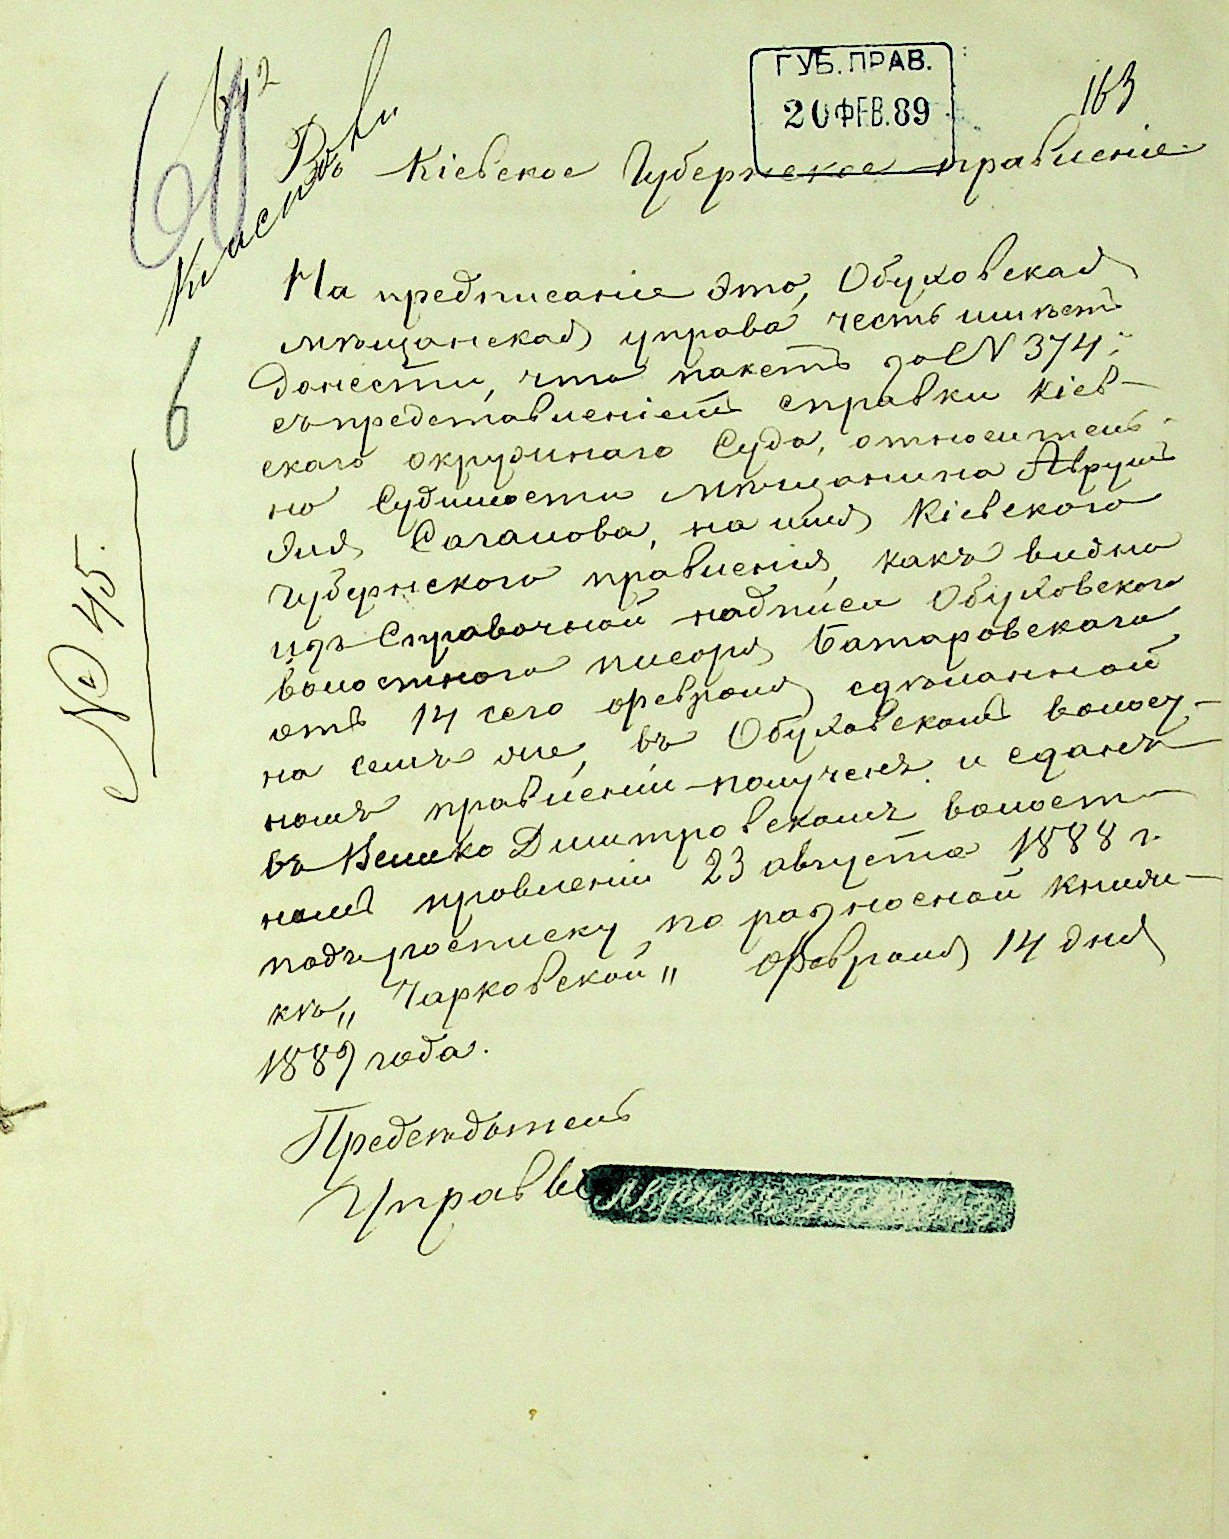 ГУБ. ПРАВ.
20 ФЕВ. 89
163
Въ Кіевское Губернское правленіе
На предписаніе это, Обуховская
мѣщанская управа честь имѣетъ
донести, что пакетъ за № 374,
съ представленіемъ справки Кіев-
скаго окружнаго Суда, относитель-
но Судимости мѣщанина Аврум
Эля Сагалова, на имя Кіевского
Губернского правленія, какъ видно
изъ Справочной надписи Обуховского
волостного писаря Батаровскаго
отъ 14 сего февраля, сдѣланной
на семъ же, въ Обуховскомъ волост-
номъ правленіи получена и сданъ
въ Велико Димитровскомъ волост-
номъ правленіи 23 августа 1888 г.
подъ росписку по разносной книж-
кѣ „Чарковской„ Февраля 14 дня
1889 года.
Предсѣдатель
Управы
№ 45.
6